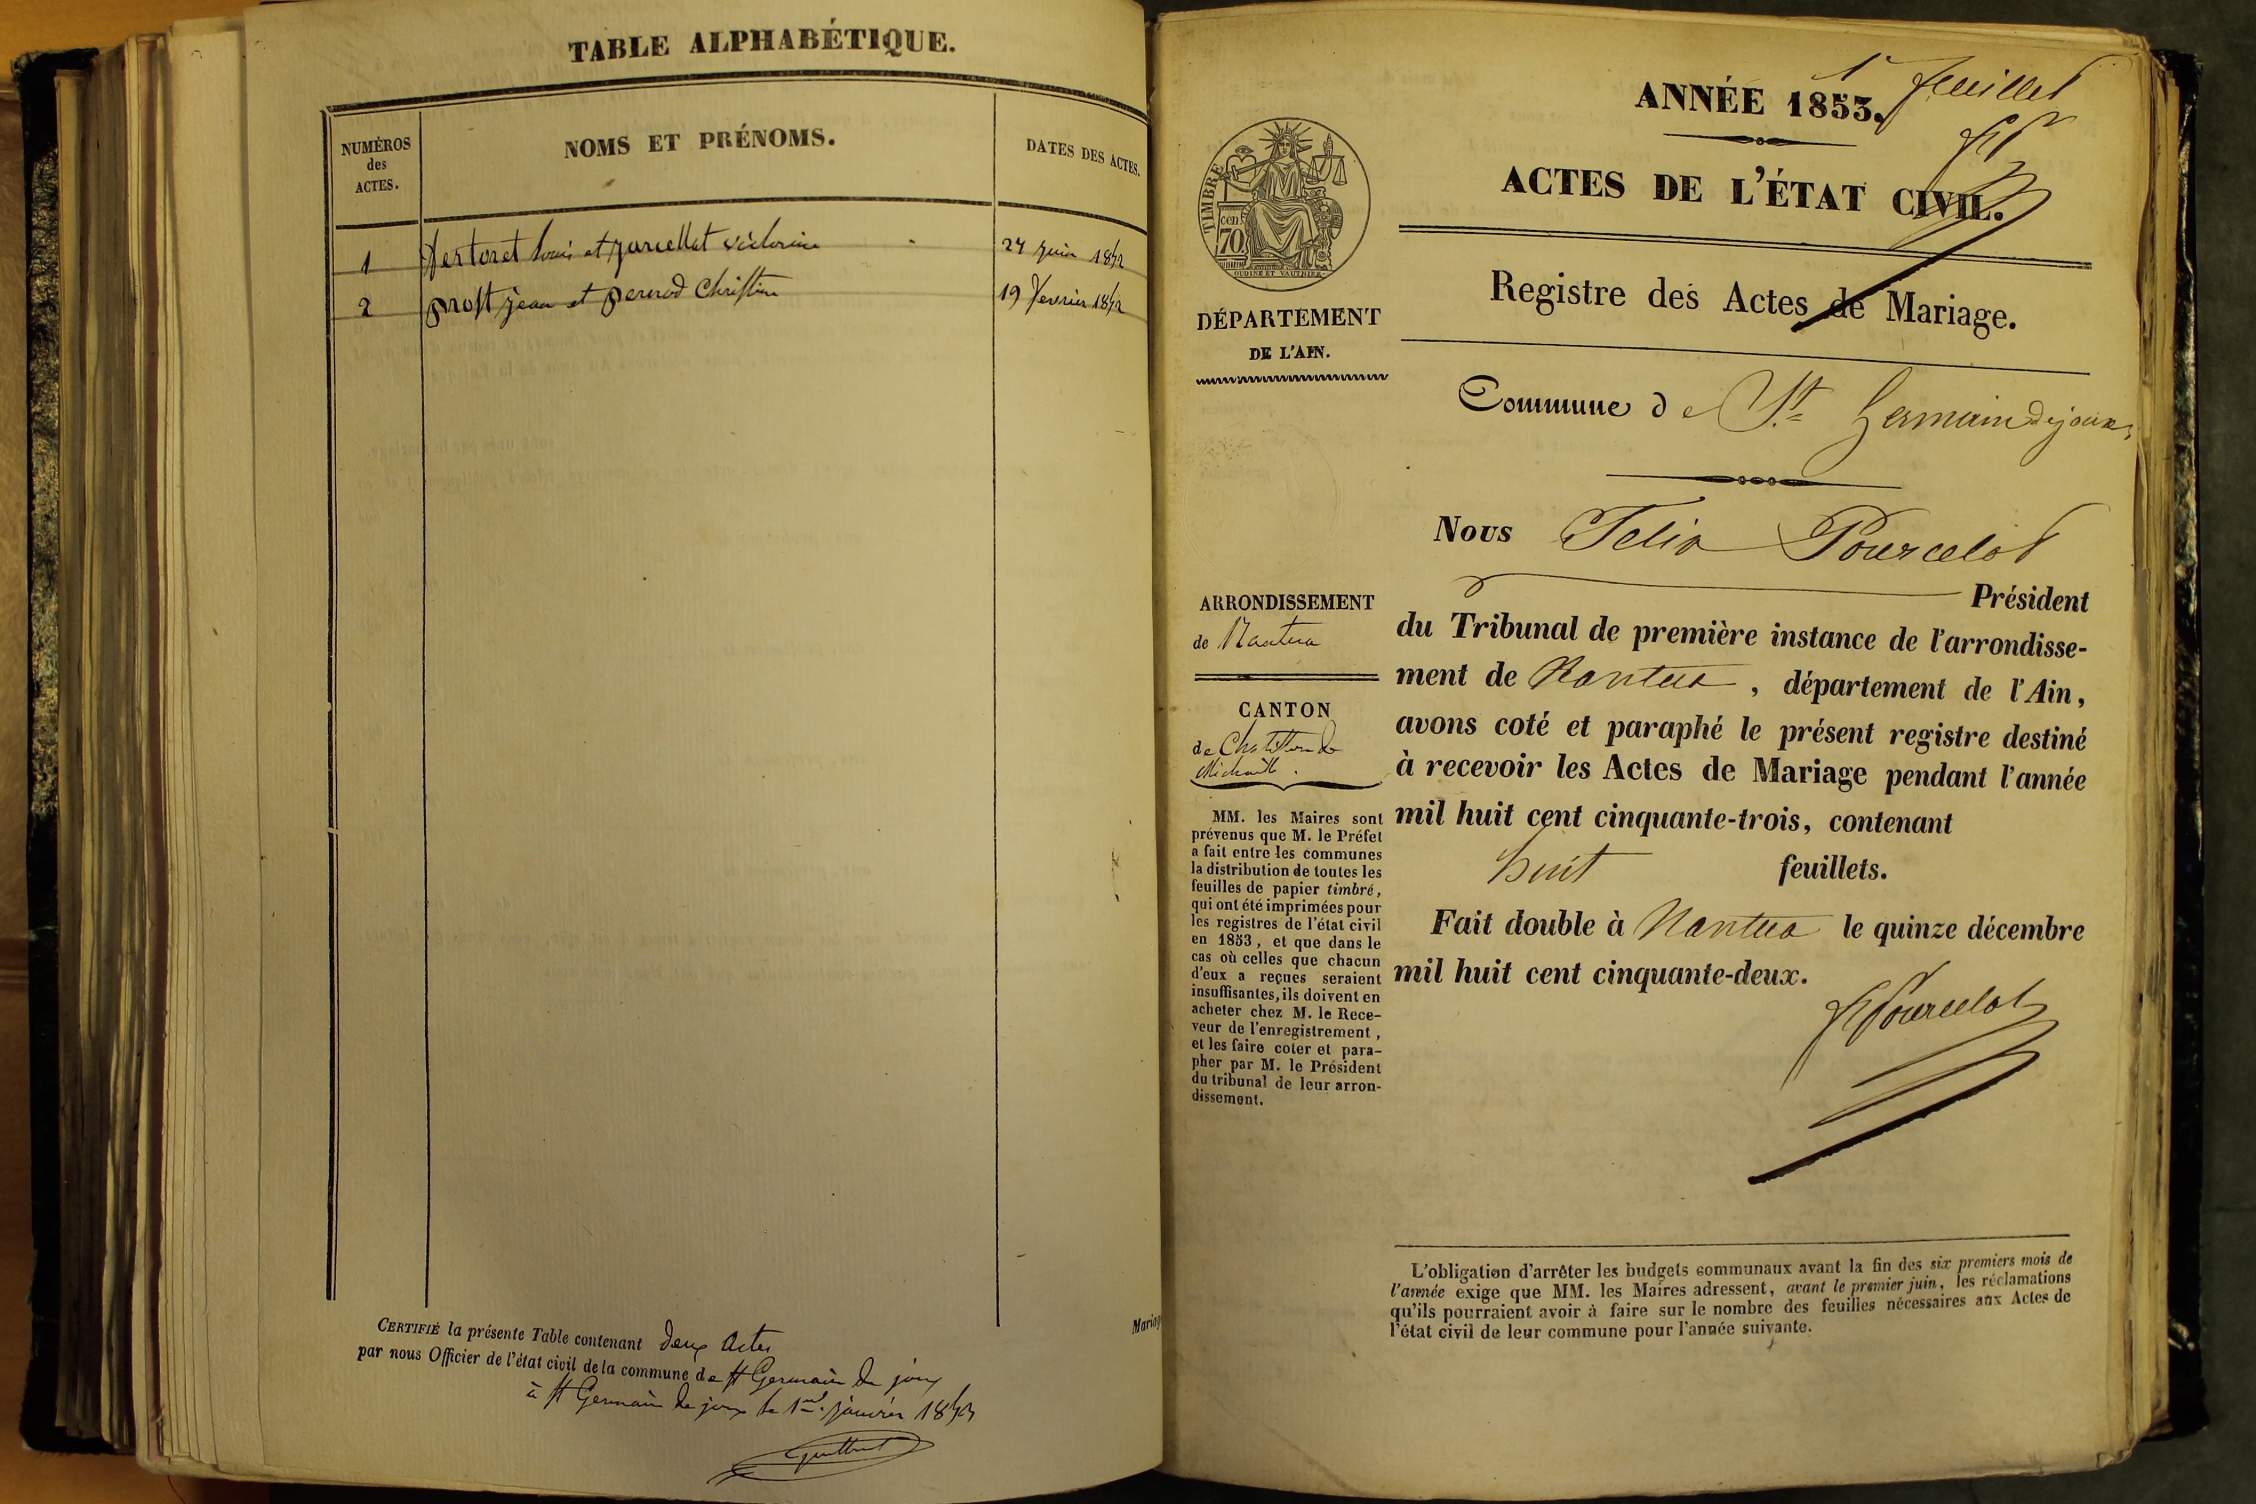 TABLE ALPHABÉTIQUE.
NUMÉROS
des
ACTES.
NOMS ET PRÉNOMS.
DATES DES ACTES.
1 Louis et victorine 24 juin 1852
2 prost jean et pernod Christine 19 fevrier 1852
CERTIFIÉ la présente Table contenant deux actes
par nous Officier de l'état civil de la commune de St Germain de joux
à St Germain de joux le 1er janvier 1853
Mariag
1r feuillet
ANNÉE 1853.
ACTES DE L'ÉTAT CIVIL.
TIMBRE
70 cen
OUDINÉ ET VAUTHIER
Registre des Actes de Mariage.
DÉPARTEMENT
DE L'AIN.
Commune de St. Germain de joux
Nous Felix Pourcelot
Président
ARRONDISSEMENT
de Nantua
CANTON
de Chatillon de
Michaille.
du Tribunal de première instance de l'arrondisse-
ment de Nantua, département de l'Ain,
avons coté et paraphé le présent registre destiné
à recevoir les Actes de Mariage pendant l'année
mil huit cent cinquante-trois, contenant
huit feuillets.
Fait double à Nantua le quinze décembre
mil huit cent cinquante-deux.
F Pourcelot
MM. les Maires sont
prévenus que M. le Préfet
a fait entre les communes
la distribution de toutes les
feuilles de papier timbré,
qui ont été imprimées pour
les registres de l'état civil
en 1853, et que dans le
cas où celles que chacun
d'eux a reçues seraient
insuffisantes, ils doivent en
acheter chez M. le Rece-
veur de l'enregistrement,
et les faire coter et para-
pher par M. le Président
du tribunal de leur arron-
dissement.
L'obligation d'arrêter les budgets communaux avant la fin des six premiers mois de
l'année exige que MM. les Maires adressent, avant le premier juin, les réclamations
qu'ils pourraient avoir à faire sur le nombre des feuilles nécessaires aux Actes de
l'état civil de leur commune pour l'année suivante.